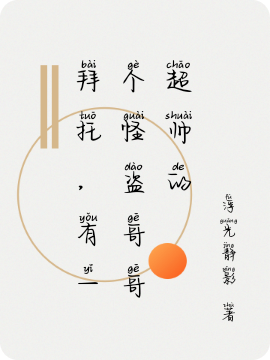 bài tuō yǒu yī
拜托，有一
gè guài dào gē gē
个怪盗哥哥
chāo shuài de
超帅的
fú guāng jìng yǐng zhù
浮光静影 著